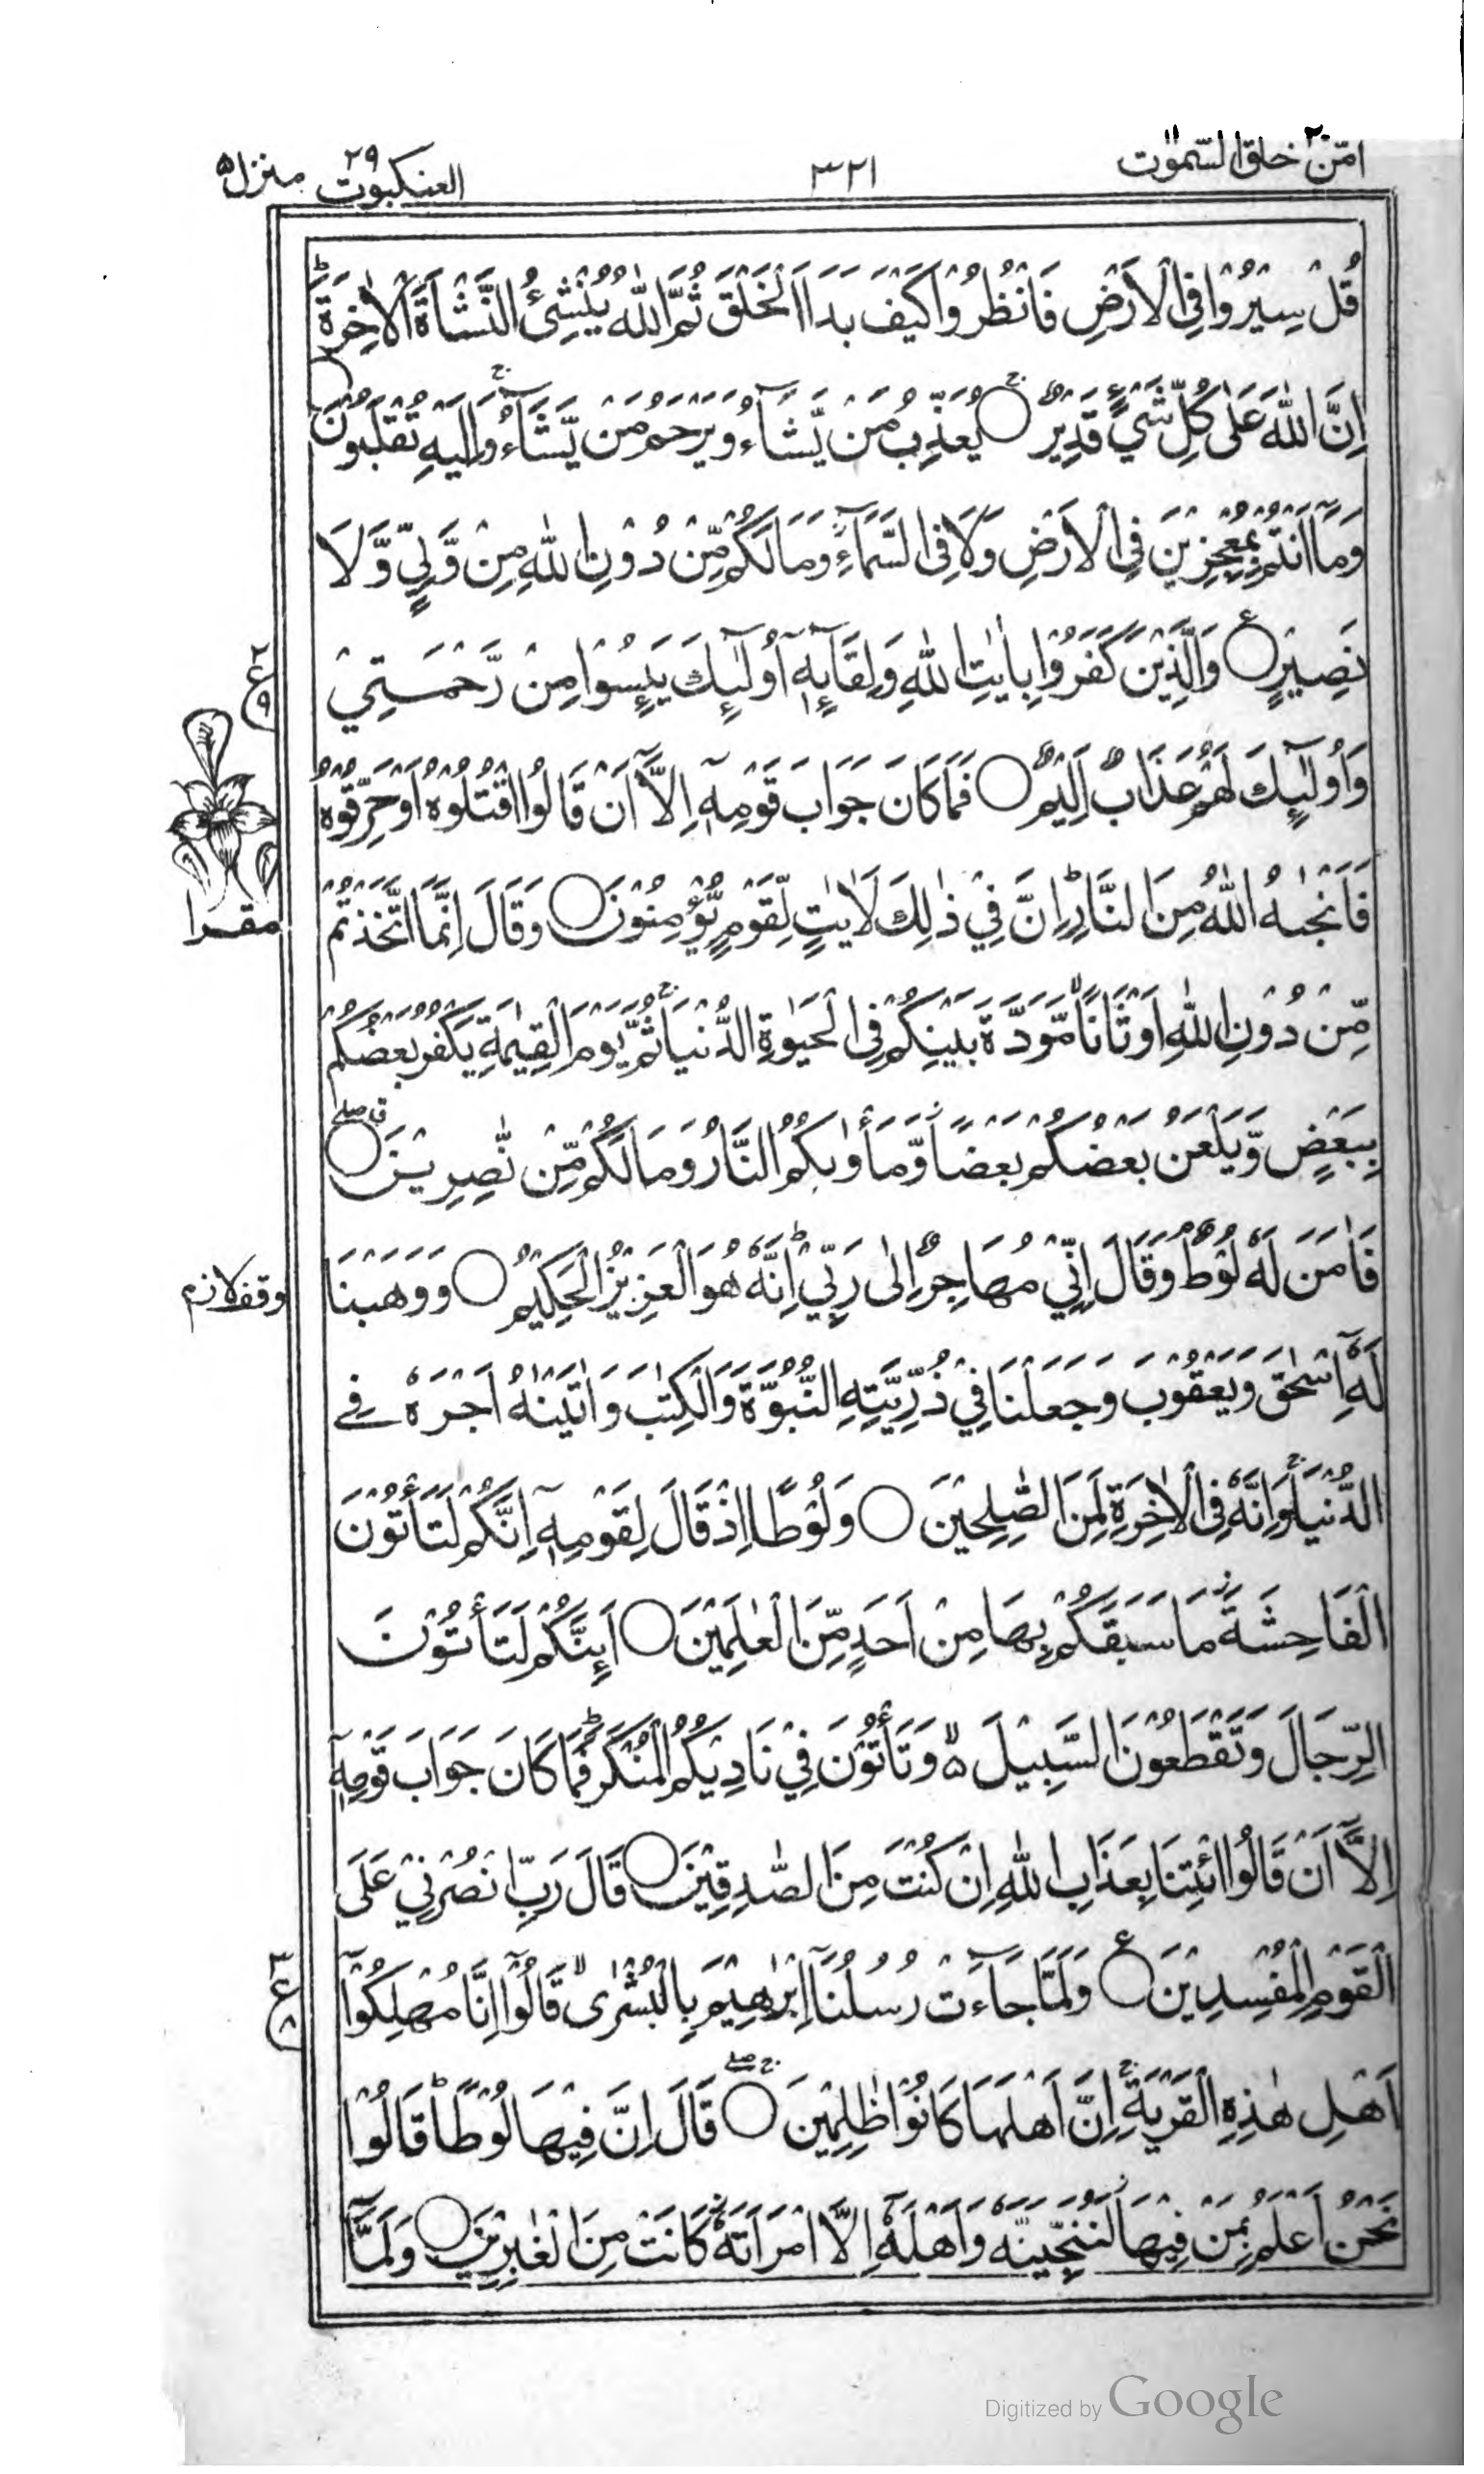 امّن ٢٠ خلق السّمٰوٰت
٣٢١
العنكبوت ٢٩ منزل ۵
قُلْ سِيْرُوْا فِى الْاَرْضِ فَانْظُرُوْا كَيْفَ بَدَاَ الْخَلْقَ ثُمَّ اللّٰهُ يُنْشِئُ النَّشْاَةَ الْاٰخِرَةَ ط
اِنَّ اللّٰهَ عَلٰى كُلِّ شَيْءٍ قَدِيْرٌ ○ ج يُعَذِّبُ مَنْ يَّشَآءُ وَيَرْحَمُ مَنْ يَّشَآءُ ج وَاِلَيْهِ تُقْلَبُوْنَ ○
وَمَآ اَنْتُمْ بِمُعْجِزِيْنَ فِى الْاَرْضِ وَلَا فِى السَّمَآءِ ز وَمَا لَكُمْ مِّنْ دُوْنِ اللّٰهِ مِنْ وَّلِيٍّ وَّلَا
نَصِيْرٍ ○ ع وَالَّذِيْنَ كَفَرُوْا بِاٰيٰتِ اللّٰهِ وَلِقَآىِٕهٖٓ اُولٰٓىِٕكَ يَىِٕسُوْا مِنْ رَّحْمَتِيْ
ع ٢ ٩
وَاُولٰٓىِٕكَ لَهُمْ عَذَابٌ اَلِيْمٌ ○ فَمَا كَانَ جَوَابَ قَوْمِهٖٓ اِلَّآ اَنْ قَالُوا اقْتُلُوْهُ اَوْ حَرِّقُوْهُ
فَاَنْجٰىهُ اللّٰهُ مِنَ النَّارِ ط اِنَّ فِيْ ذٰلِكَ لَاٰيٰتٍ لِّقَوْمٍ يُّؤْمِنُوْنَ ○ وَقَالَ اِنَّمَا اتَّخَذْتُمْ
مقرا
مِّنْ دُوْنِ اللّٰهِ اَوْثَانًا لا مَّوَدَّةَ بَيْنِكُمْ فِى الْحَيٰوةِ الدُّنْيَا ج ثُمَّ يَوْمَ الْقِيٰمَةِ يَكْفُرُ بَعْضُكُمْ
بِبَعْضٍ وَّيَلْعَنُ بَعْضُكُمْ بَعْضًا ز وَّمَاْوٰىكُمُ النَّارُ وَمَا لَكُمْ مِّنْ نّٰصِرِيْنَ ○ ق صلے
فَاٰمَنَ لَهٗ لُوْطٌ م وَقَالَ اِنِّيْ مُهَاجِرٌ اِلٰى رَبِّيْ ط اِنَّهٗ هُوَ الْعَزِيْزُ الْحَكِيْمُ ○ وَوَهَبْنَا
وقف لازم
لَهٗٓ اِسْحٰقَ وَيَعْقُوْبَ وَجَعَلْنَا فِيْ ذُرِّيَّتِهِ النُّبُوَّةَ وَالْكِتٰبَ وَاٰتَيْنٰهُ اَجْرَهٗ فِے
الدُّنْيَا ج وَاِنَّهٗ فِى الْاٰخِرَةِ لَمِنَ الصّٰلِحِيْنَ ○ وَلُوْطًا اِذْ قَالَ لِقَوْمِهٖٓ اِنَّكُمْ لَتَاْتُوْنَ
الْفَاحِشَةَ ز مَا سَبَقَكُمْ بِهَا مِنْ اَحَدٍ مِّنَ الْعٰلَمِيْنَ ○ اَىِٕنَّكُمْ لَتَاْتُوْنَ
الرِّجَالَ وَتَقْطَعُوْنَ السَّبِيْلَ ۵ لا وَتَاْتُوْنَ فِيْ نَادِيْكُمُ الْمُنْكَرَ ط فَمَا كَانَ جَوَابَ قَوْمِهٖٓ
اِلَّآ اَنْ قَالُوا ائْتِنَا بِعَذَابِ اللّٰهِ اِنْ كُنْتَ مِنَ الصّٰدِقِيْنَ ○ قَالَ رَبِّ انْصُرْنِيْ عَلَى
الْقَوْمِ الْمُفْسِدِيْنَ ○ ع وَلَمَّا جَآءَتْ رُسُلُنَآ اِبْرٰهِيْمَ بِالْبُشْرٰى لا قَالُوْٓا اِنَّا مُهْلِكُوْٓا
ع ٣ ٨
اَهْلِ هٰذِهِ الْقَرْيَةِ ج اِنَّ اَهْلَهَا كَانُوْا ظٰلِمِيْنَ ○ ج صلے قَالَ اِنَّ فِيْهَا لُوْطًا ط قَالُوْا
نَحْنُ اَعْلَمُ بِمَنْ فِيْهَا ز لَنُنَجِّيَنَّهٗ وَاَهْلَهٗٓ اِلَّا امْرَاَتَهٗ ز كَانَتْ مِنَ الْغٰبِرِيْنَ ○ وَلَمَّآ
Digitized by Google